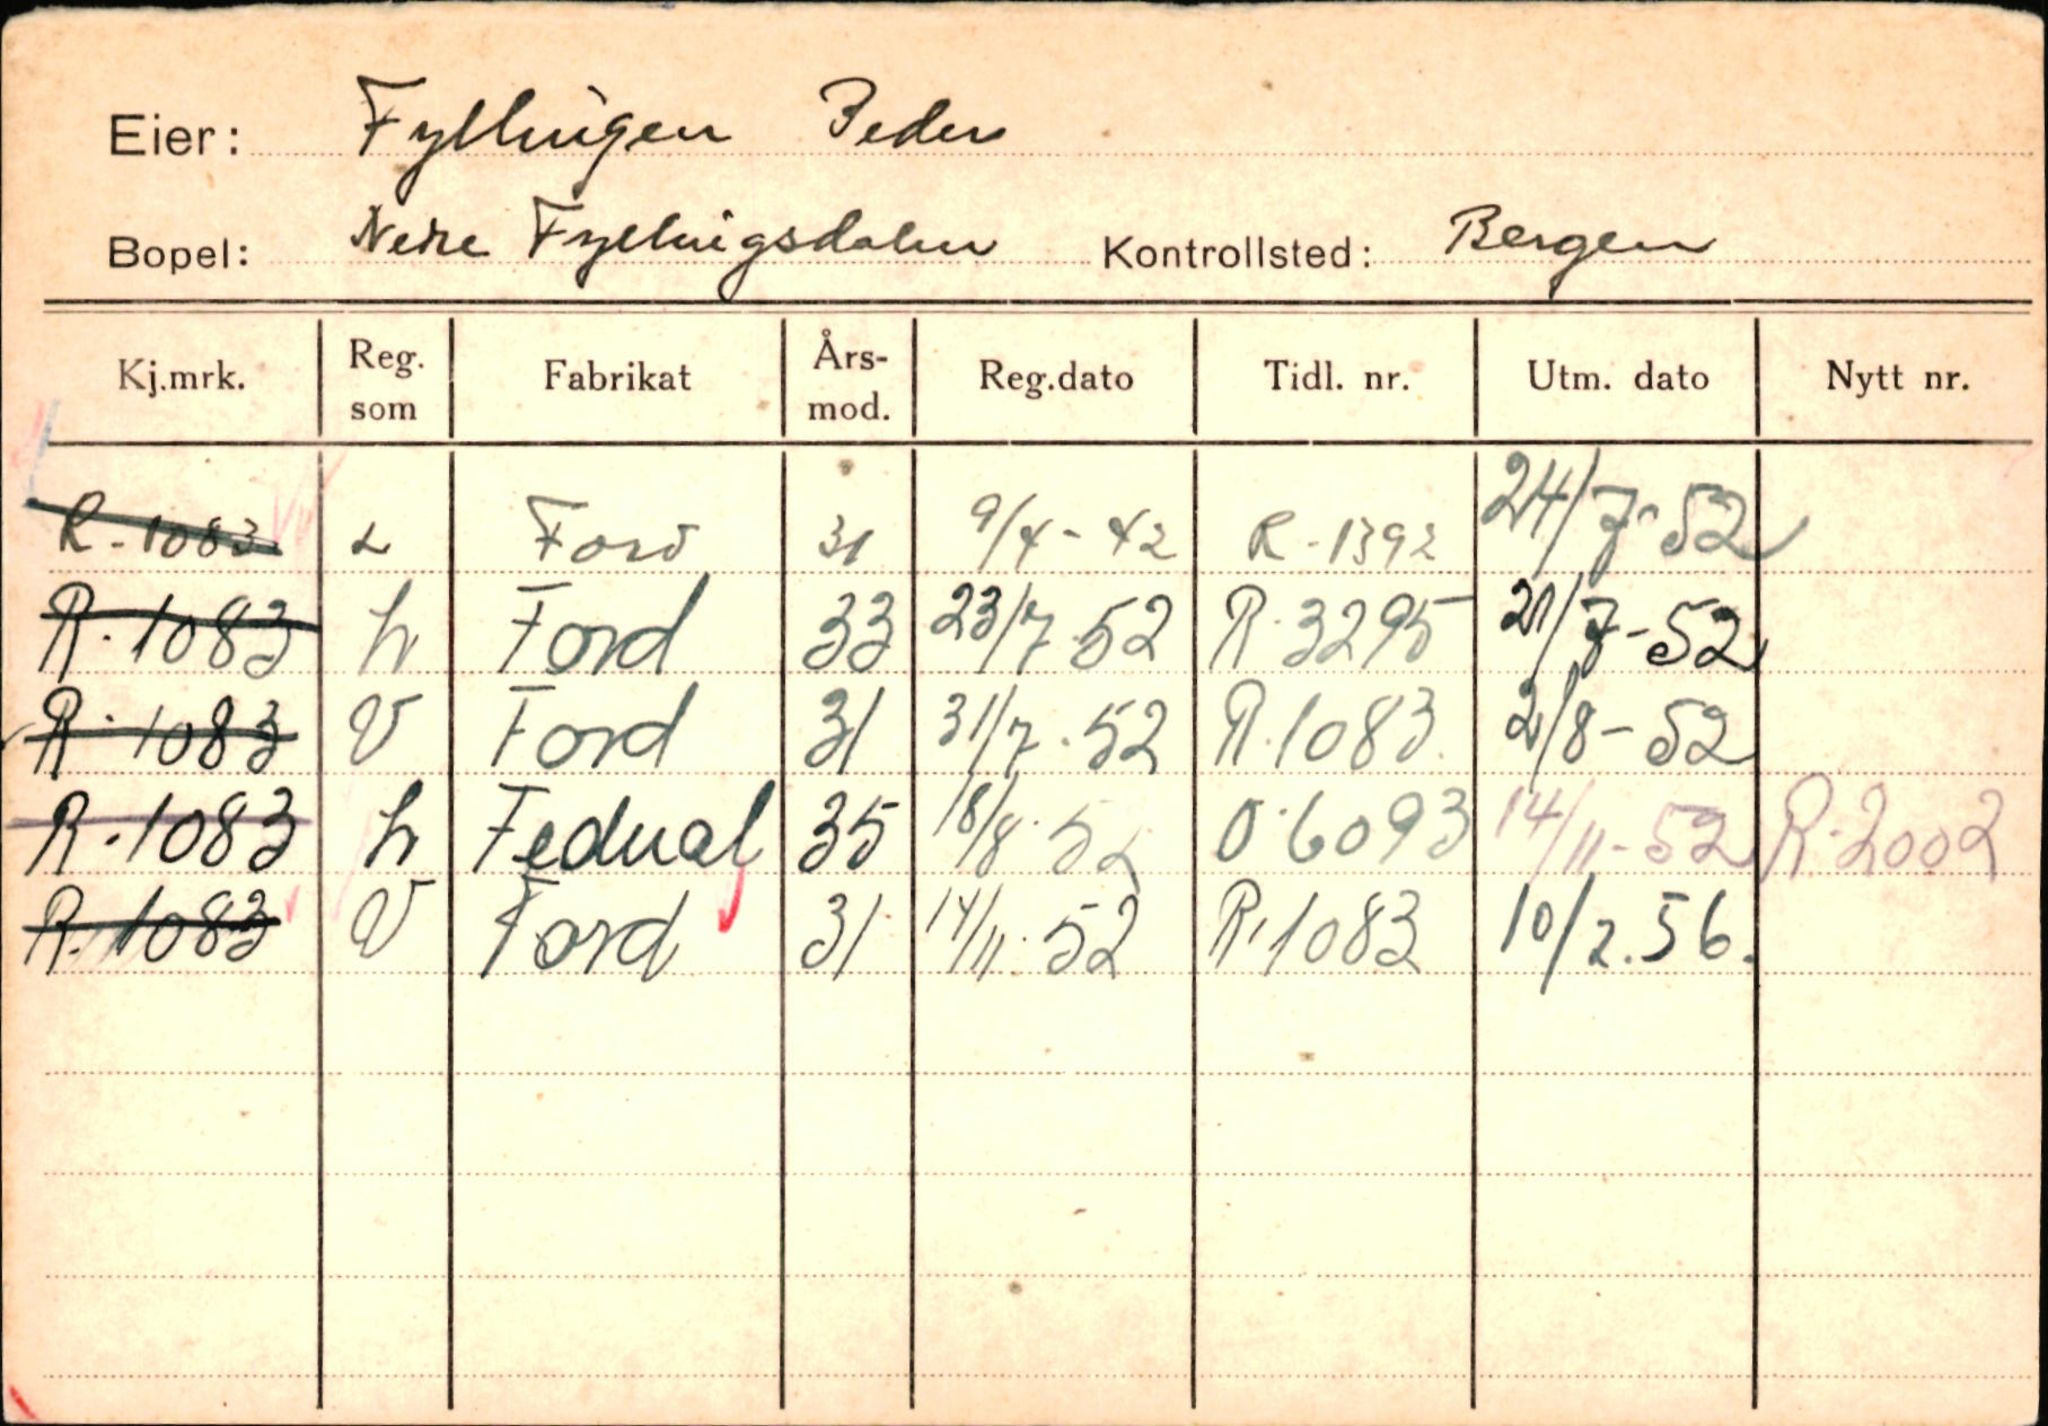 Eier: Fyllingen Peder
Bopel: Nedre Fyllingsdalen Kontrollsted: Bergen
Kj.mrk. Reg. som Fabrikat Års-mod. Reg.dato Tidl. nr. Utm. dato Nytt nr.
R-1083 L Ford 31 9/4-42 R-1392 24/7-52
R.1083 L Ford 33 23/7.52 R.3295 /7-52
R-1083 V Ford 31 31/7.52 R.1083. 2/8-52
R.1083 L Fedual 35 18/8.52 O.6093 14/11-52 R.2002
R.1083 V Ford 31 14/11.52 R.1083 10/2.56.